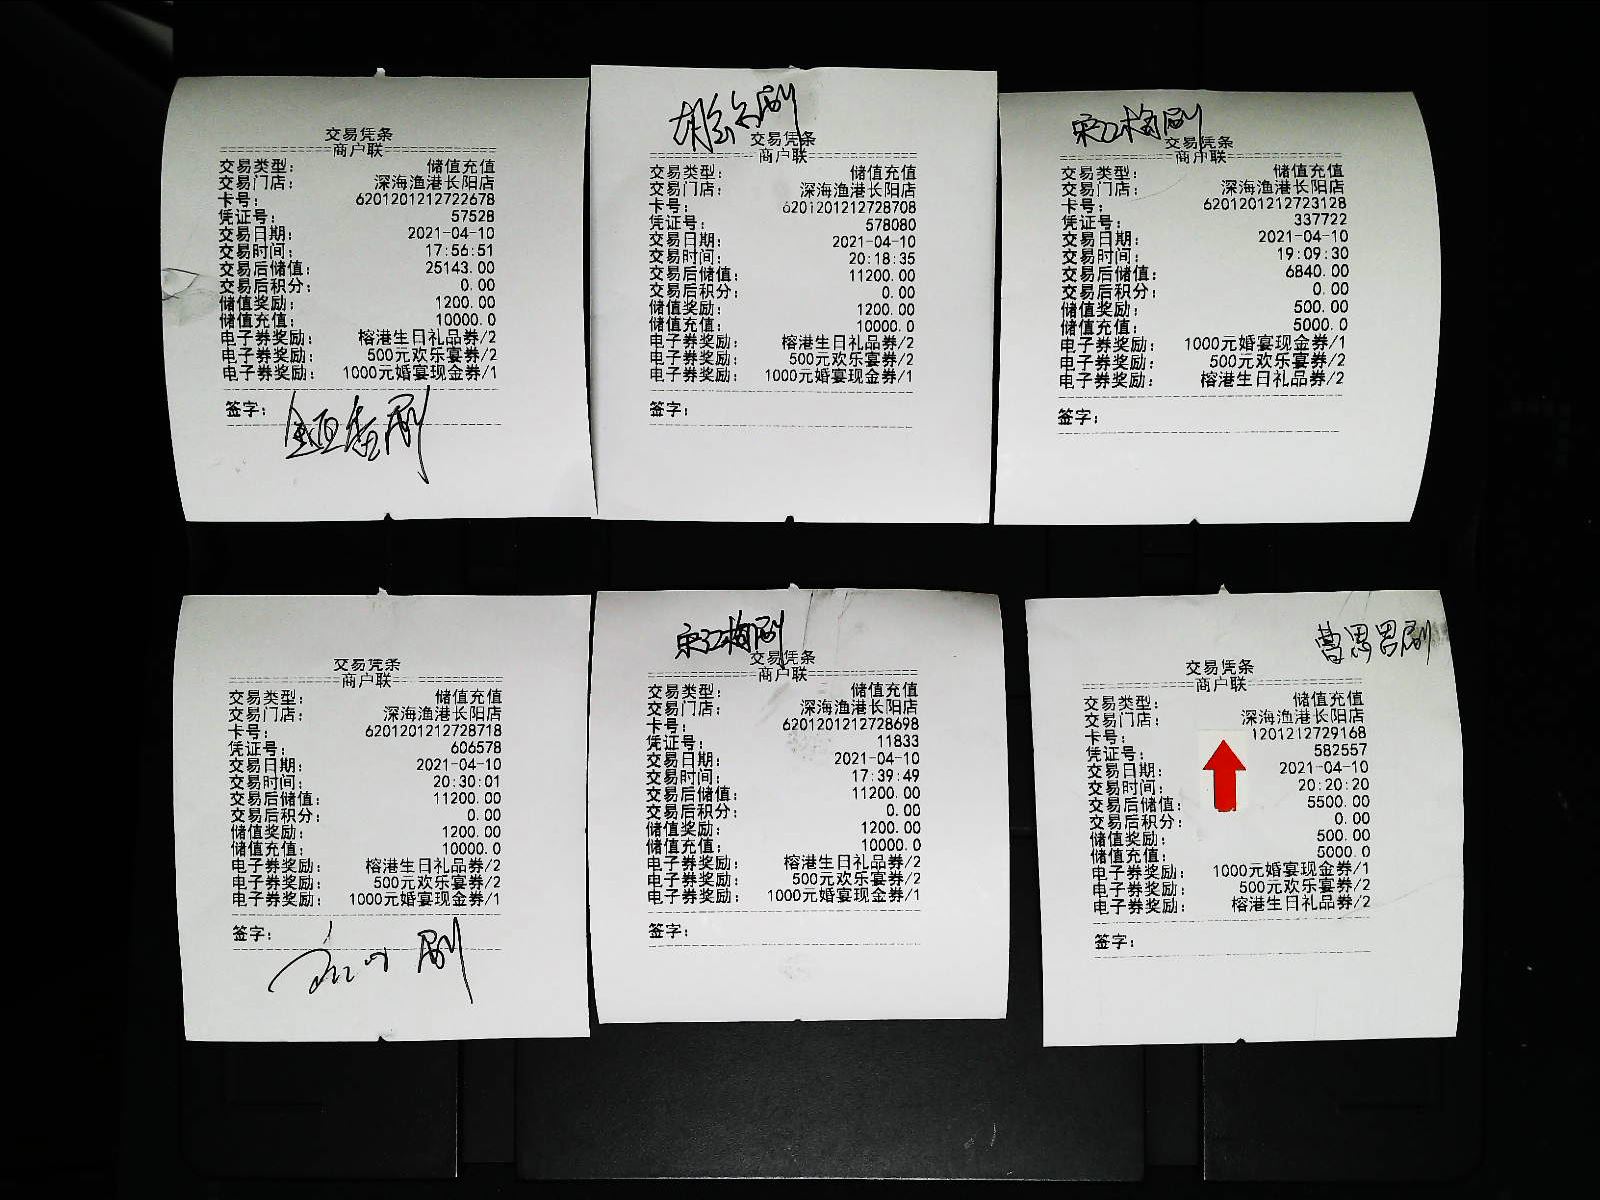 交易凭条
商户联
交易类型： 储值充值
交易门店： 深海渔港长阳店
卡号： 6201201212722678
凭证号： 57528
交易日期： 2021-04-10
交易时间： 17:56:51
交易后储值： 25143.00
交易后积分： 0.00
储值奖励： 1200.00
储值充值： 10000.0
电子券奖励： 榕港生日礼品券/2
电子券奖励： 500元欢乐宴券/2
电子券奖励： 1000元婚宴现金券/1
签字：
刷
刷
交易凭条
商户联
交易类型： 储值充值
交易门店： 深海渔港长阳店
卡号： 6201201212728708
凭证号： 578080
交易日期： 2021-04-10
交易时间： 20:18:35
交易后储值： 11200.00
交易后积分： 0.00
储值奖励： 1200.00
储值充值： 10000.0
电子券奖励： 榕港生日礼品券/2
电子券奖励： 500元欢乐宴券/2
电子券奖励： 1000元婚宴现金券/1
签字：
宋江梅刷
交易凭条
商户联
交易类型： 储值充值
交易门店： 深海渔港长阳店
卡号： 6201201212723128
凭证号： 337722
交易日期： 2021-04-10
交易时间： 19:09:30
交易后储值： 6840.00
交易后积分： 0.00
储值奖励： 500.00
储值充值： 5000.0
电子券奖励： 1000元婚宴现金券/1
电子券奖励： 500元欢乐宴券/2
电子券奖励： 榕港生日礼品券/2
签字：
交易凭条
商户联
交易类型： 储值充值
交易门店： 深海渔港长阳店
卡号： 6201201212728718
凭证号： 606578
交易日期： 2021-04-10
交易时间： 20:30:01
交易后储值： 11200.00
交易后积分： 0.00
储值奖励： 1200.00
储值充值： 10000.0
电子券奖励： 榕港生日礼品券/2
电子券奖励： 500元欢乐宴券/2
电子券奖励： 1000元婚宴现金券/1
签字：
刷
宋江梅刷
交易凭条
商户联
交易类型： 储值充值
交易门店： 深海渔港长阳店
卡号： 6201201212728698
凭证号： 11833
交易日期： 2021-04-10
交易时间： 17:39:49
交易后储值： 11200.00
交易后积分： 0.00
储值奖励： 1200.00
储值充值： 10000.0
电子券奖励： 榕港生日礼品券/2
电子券奖励： 500元欢乐宴券/2
电子券奖励： 1000元婚宴现金券/1
签字：
曹思思刷
交易凭条
商户联
交易类型： 储值充值
交易门店： 深海渔港长阳店
卡号： 1201212729168
凭证号： 582557
交易日期： 2021-04-10
交易时间： 20:20:20
交易后储值： 5500.00
交易后积分： 0.00
储值奖励： 500.00
储值充值： 5000.0
电子券奖励： 1000元婚宴现金券/1
电子券奖励： 500元欢乐宴券/2
电子券奖励： 榕港生日礼品券/2
签字：